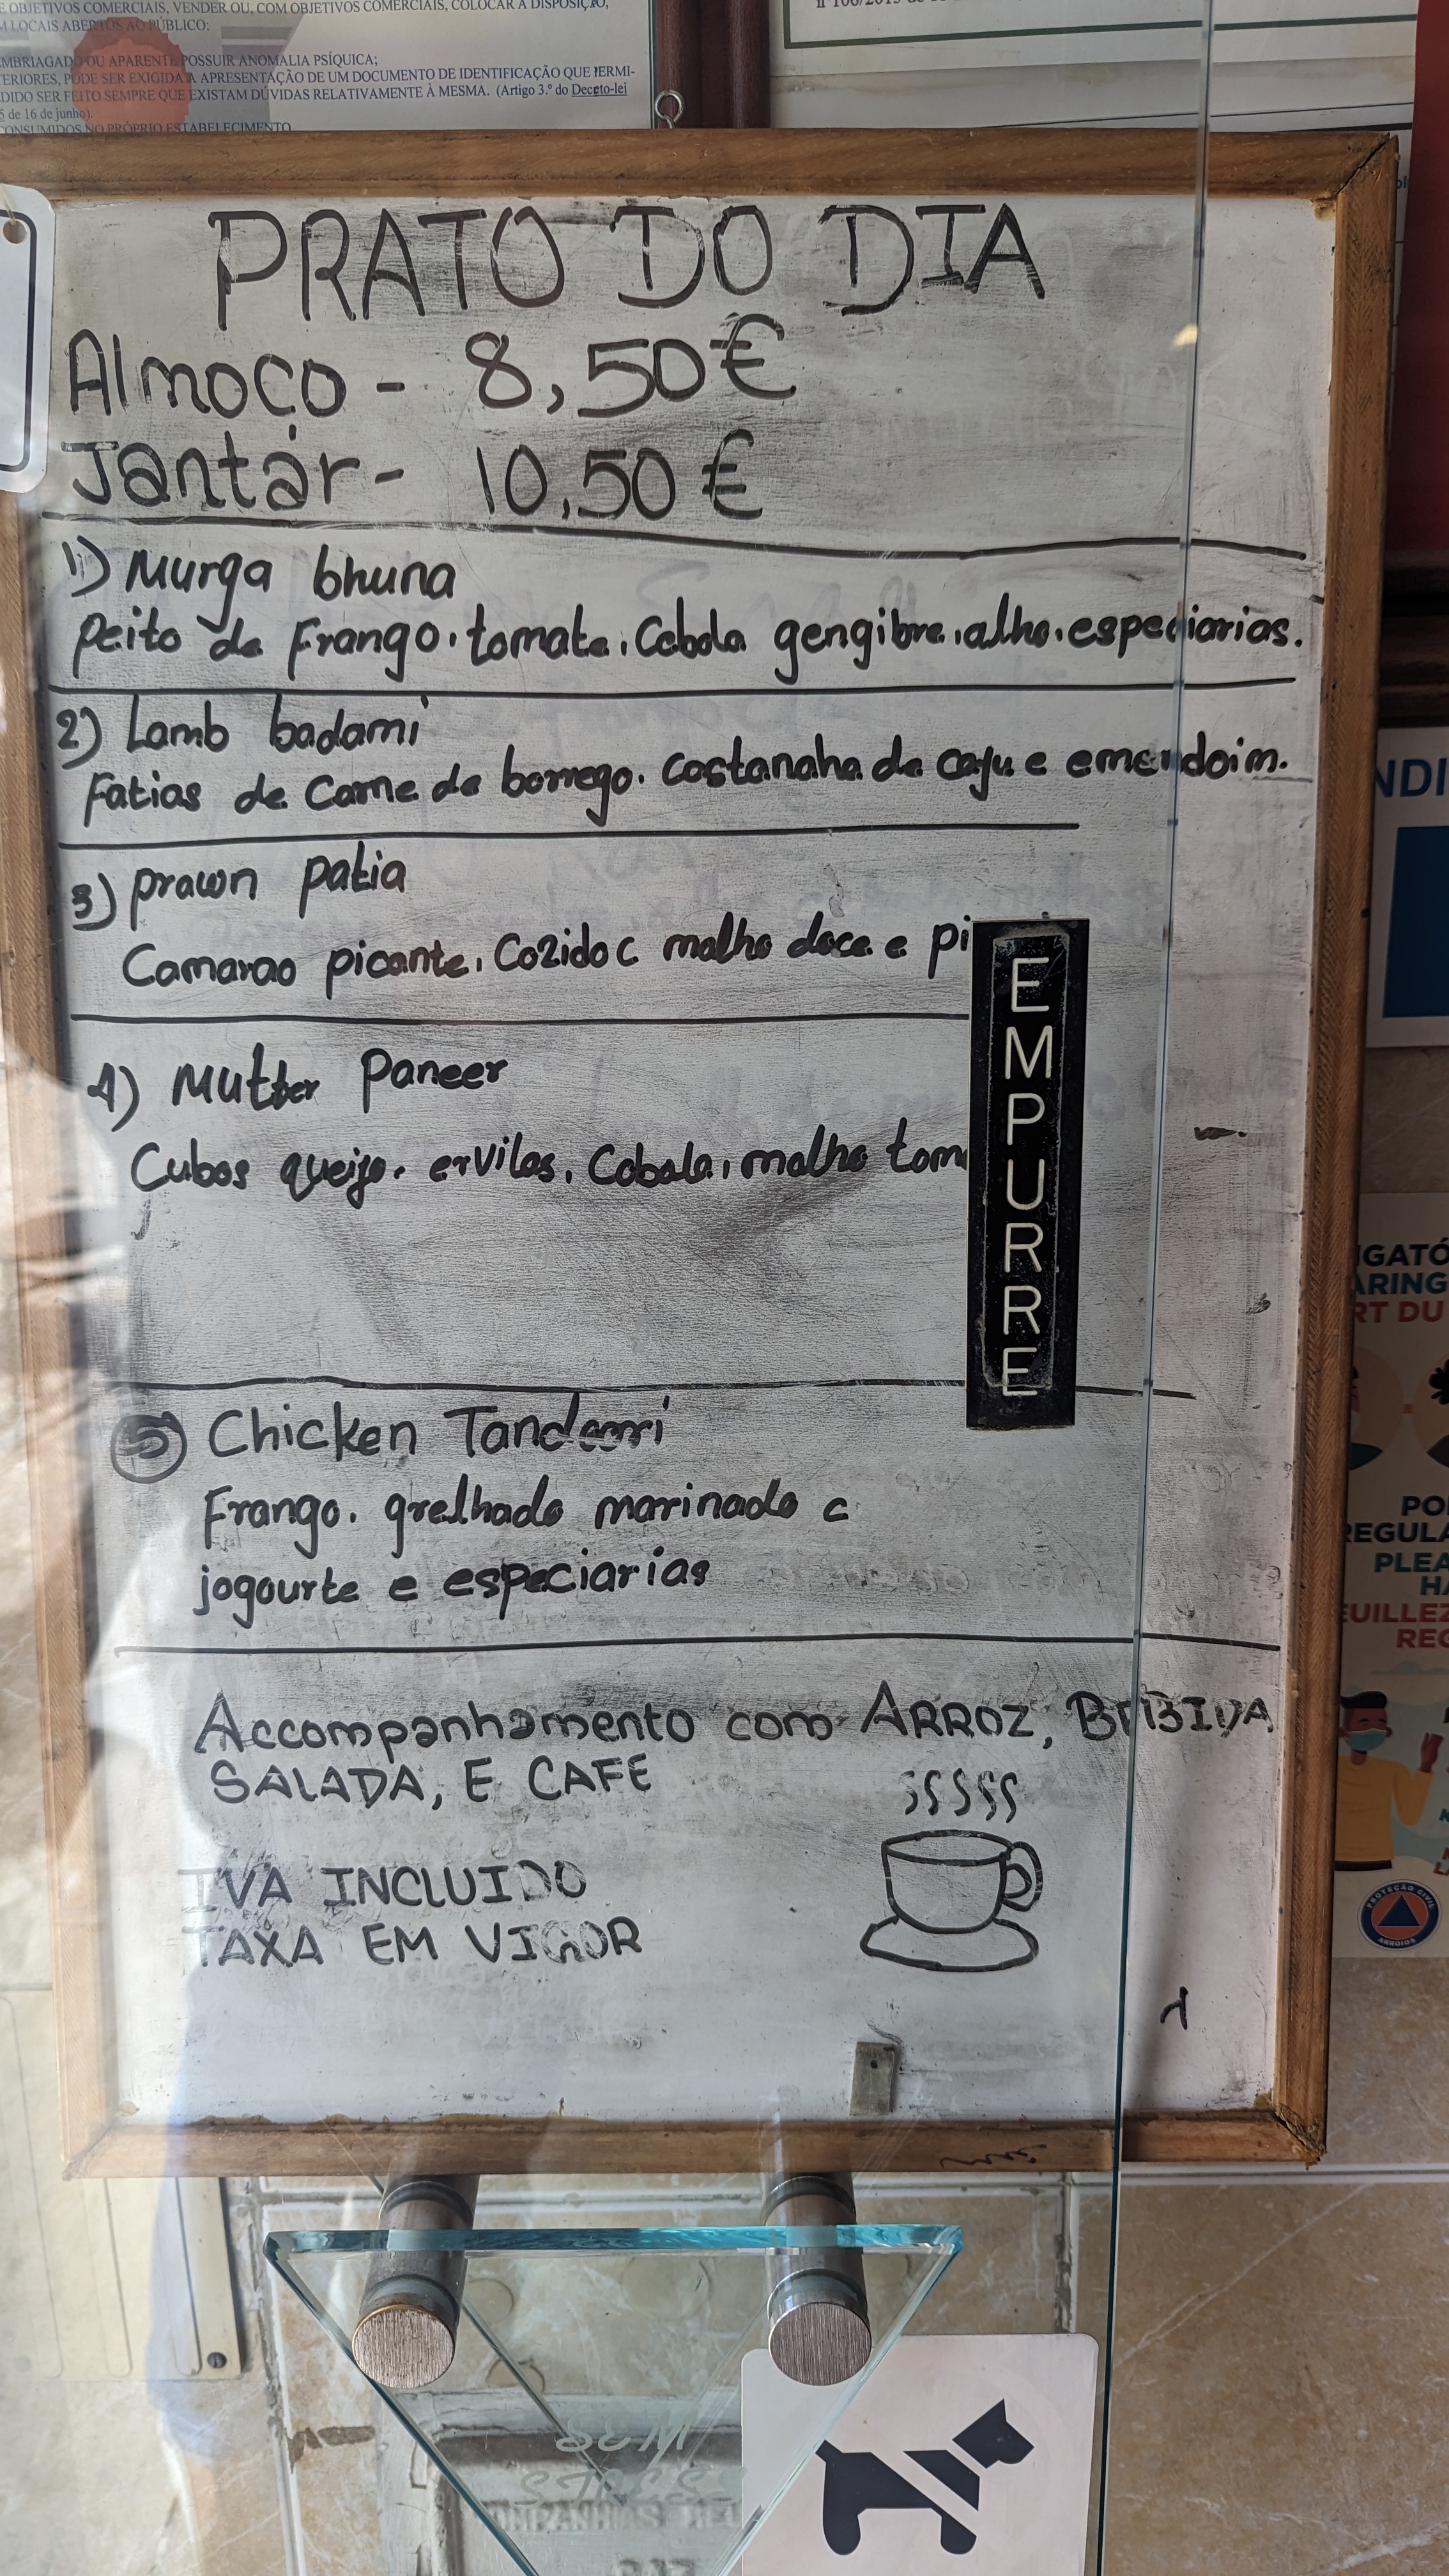 E OBJETIVOS COMERCIAIS, VENDER OU, COM OBJETIVOS COMERCIAIS, COLOCAR À DISPOSIÇÃO,
M LOCAIS ABERTOS AO PÚBLICO:
MBRIAGADO OU APARENTE POSSUIR ANOMALIA PSÍQUICA;
TERIORES, PODE SER EXIGIDA A APRESENTAÇÃO DE UM DOCUMENTO DE IDENTIFICAÇÃO QUE PERMI-
DIDO SER FEITO SEMPRE QUE EXISTAM DÚVIDAS RELATIVAMENTE À MESMA. (Artigo 3.º do Decreto-lei
5 de 16 de junho).
CONSUMIDOS NO PRÓPRIO ESTABELECIMENTO
PRATO DO DIA
Almoço - 8,50€
Jantár - 10,50€
1) Murga bhuna
Peito de Frango, tomate, Cebola gengibre, alho, especiarias.
2) Lamb badami
Fatias de Carne de borrego. Costanaha de caju e emendoim.
3) Prawn patia
Camarao picante, Cozido c malho doce e pi
4) Mutter Paneer
Cubos queijo, ervilas, Cobola, malho tom
EMPURRE
5 Chicken Tandoori
Frango. grelhado marinado c
jogourte e especiarias
Accompanhamento com ARROZ, BEBIDA
SALADA, E CAFE
IVA INCLUIDO
TAXA EM VIGOR
NDI
IGATÓ
ARING
RT DU
PO
REGULA
PLEA
HA
EUILLEZ
REG
PROTEÇÃO CIVIL
ARROIOS
SEM
STRESS